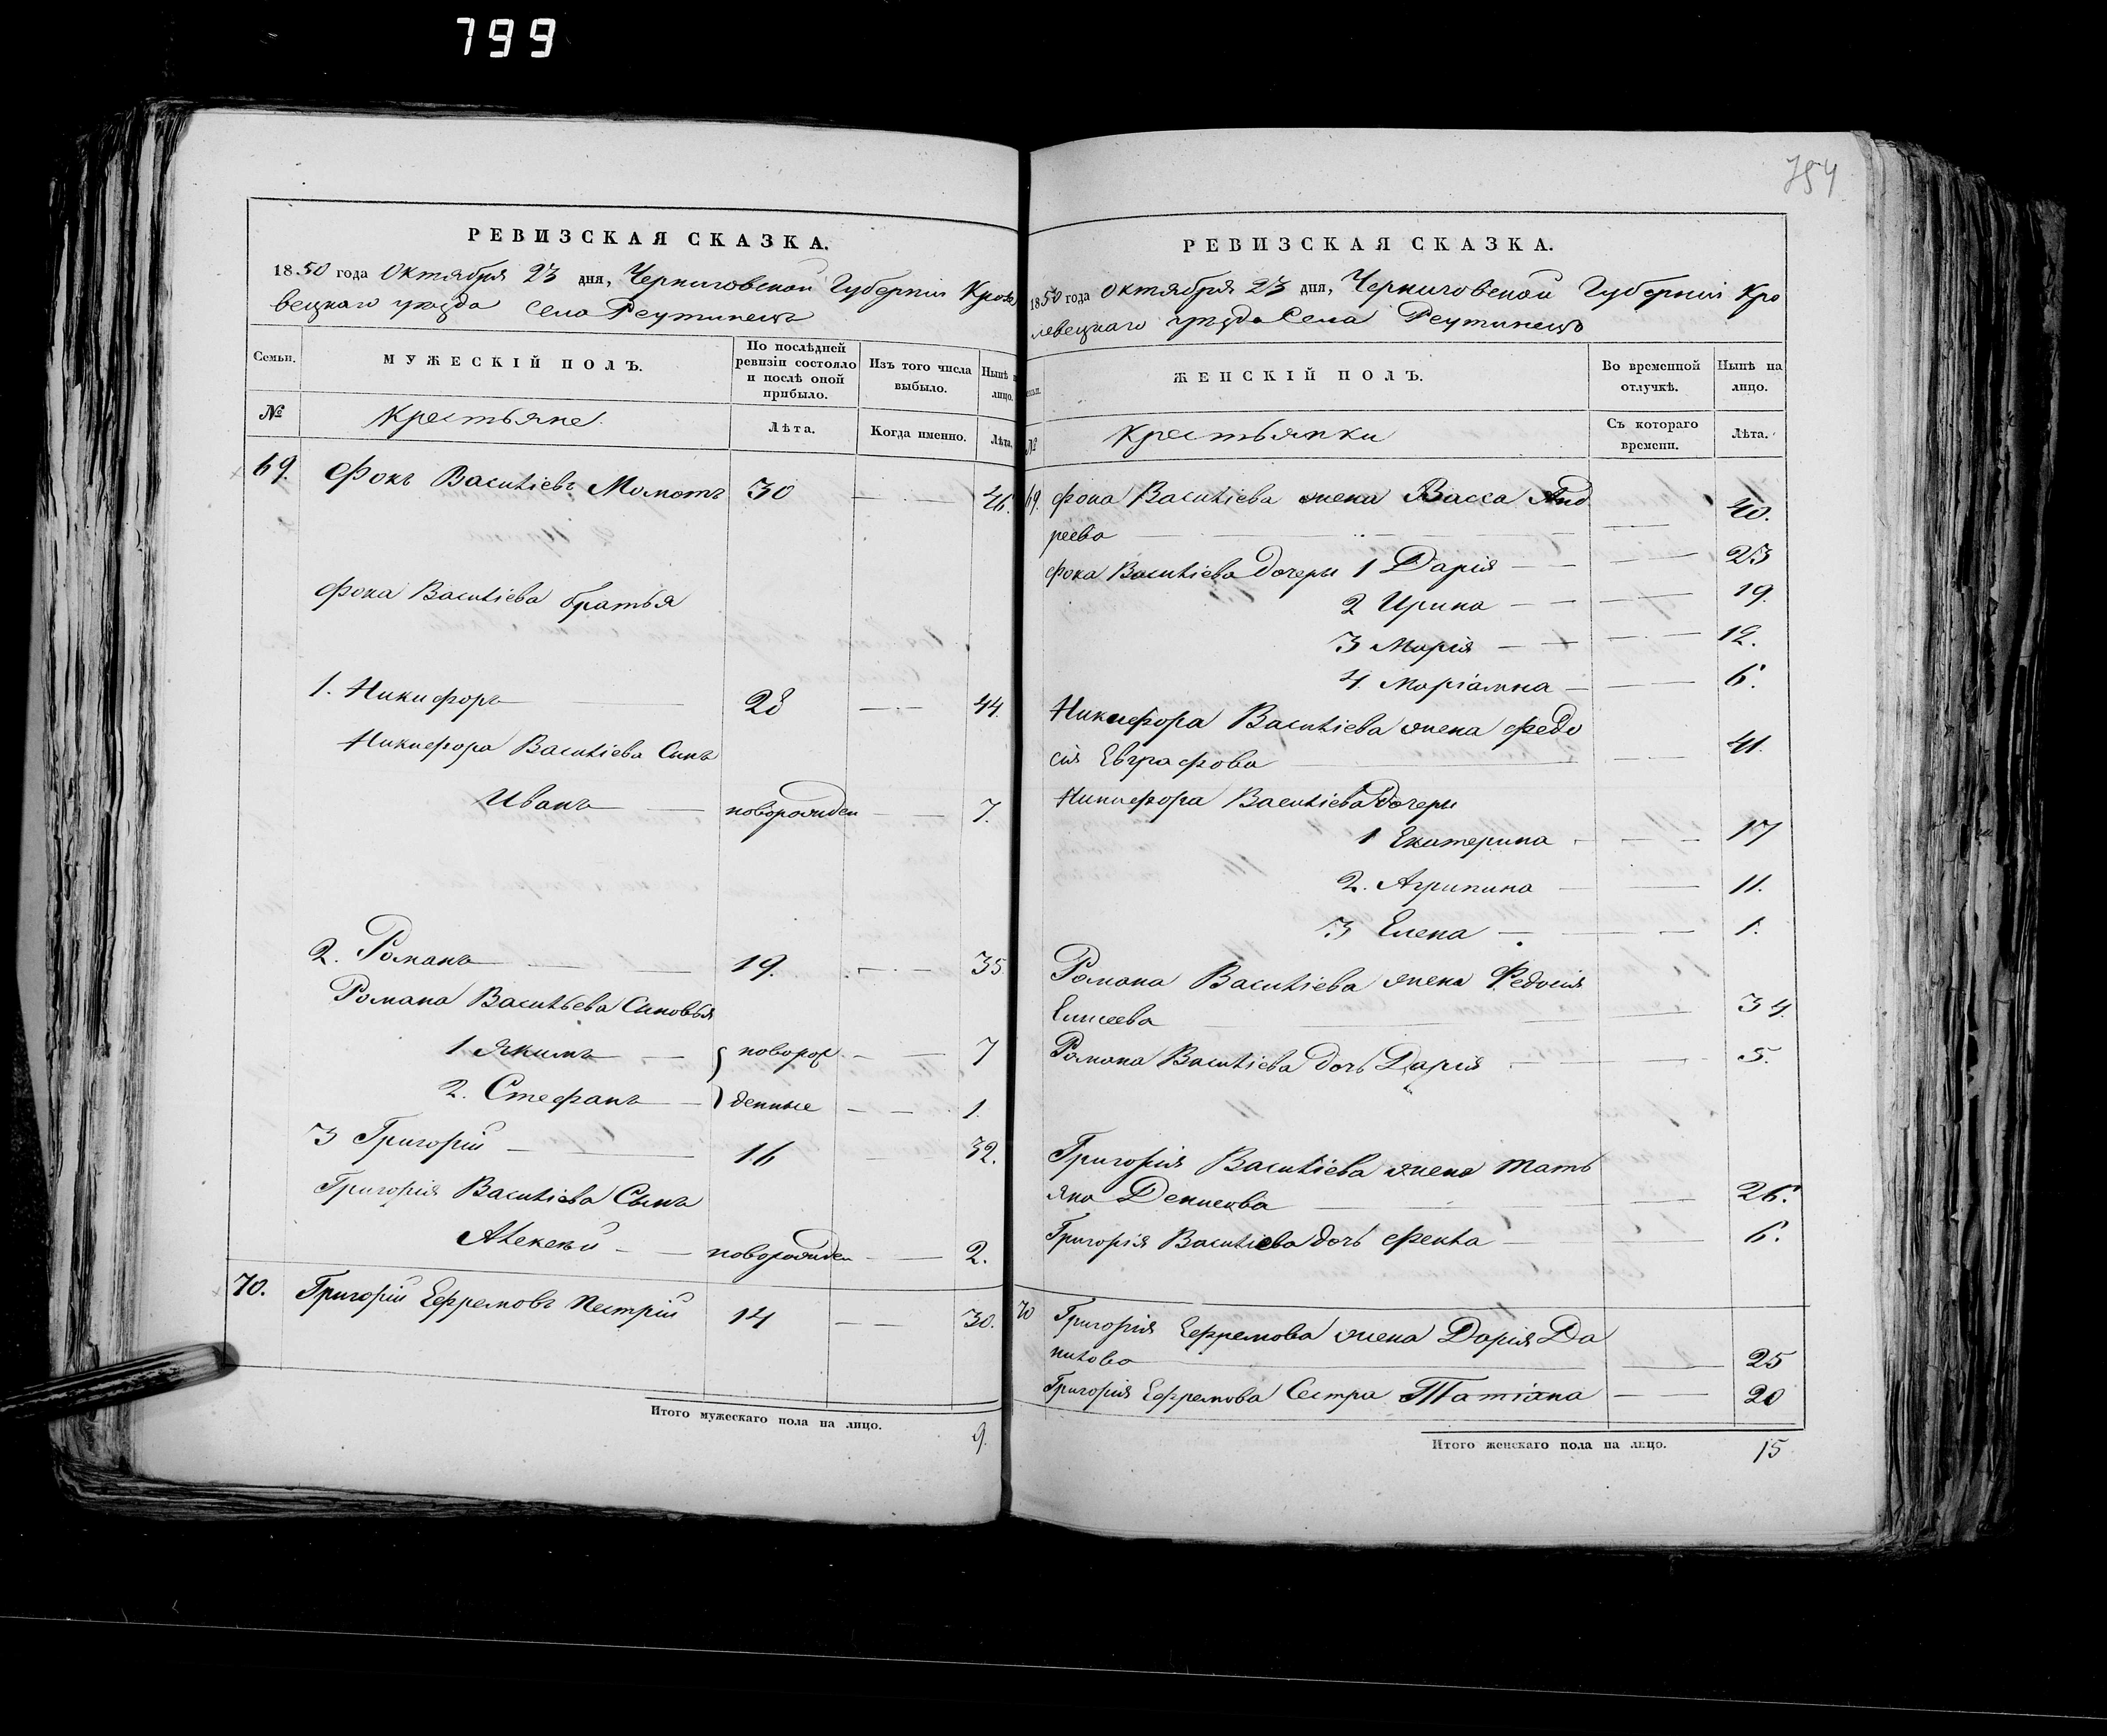 799
РЕВИЗСКАЯ СКАЗКА.
1850 года Октября 23 дня, Черниговской Губерніи Кроле
вецкаго уезда Села Реутинецъ
Семьи.
МУЖЕСКІЙ ПОЛЪ.
По послѣдней ревизіи состояло и послѣ оной прибыло.
Изъ того числа выбыло.
Нынѣ на лицо.
№
Крестьяне
Лѣта.
Когда именно.
Лѣта.
69. Фокъ Василіевъ Момотъ 30 46.
Фока Василіева братья
1. Никифоръ 28 44.
Никифора Василіева Сынъ
Иванъ новорожден 7.
2. Романъ 19. 35
Романа Васильева Сыновья
1 Якимъ новорож 7
2. Стефанъ денные 1.
3 Григорій 16 32.
Григорія Василіева Сынъ
Алексѣй новорожден 2.
70. Григорій Ефремовъ Пестрій 14 30.
Итого мужескаго пола на лицо. 9.
754
РЕВИЗСКАЯ СКАЗКА.
1850 года Октября 23 дня, Черниговской Губерніи Кро
левецкаго уезда Села Реутинецъ
ЖЕНСКІЙ ПОЛЪ.
Во временной отлучкѣ.
Нынѣ на лицо.
№
Крестьянки
Съ котораго времени.
Лѣта.
69. Фока Василіева жена Васса Анд
реева 40.
Фока Василіева дочери 1 Дарія 23
2 Ирина 19.
3 Марія 12.
4. Маріамна 6.
Никифора Василіева жена Федо
сія Евграфова 41.
Никифора Василіева дочери
1 Екатерина 17
2. Агрипина 11.
3 Елена 1.
Романа Василіева жена Федосія
Елисеева 34.
Романа Василіева дочь Дарія 5.
Григорія Василіева жена Тать
яна Денисова 26.
Григорія Василіева дочь Фекла 6.
70 Григорія Ефремова жена Дарія Да
нилова 25
Григорія Ефремова Сестра Татіана 20
Итого женскаго пола на лицо. 15